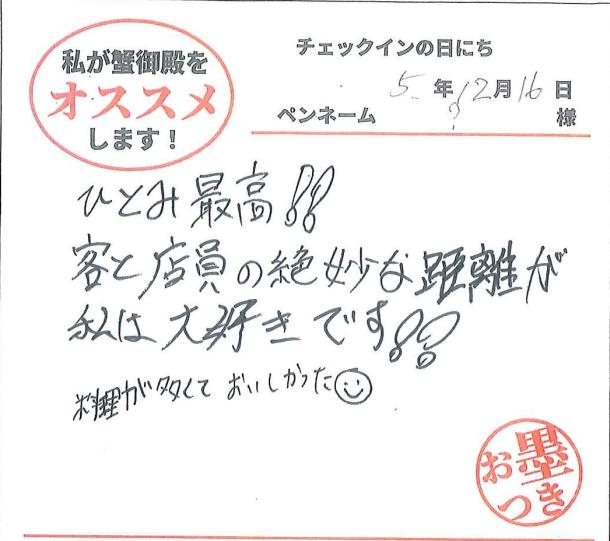 私が蟹御殿を
オススメ
します！
チェックインの日にち
5年12月16日
ペンネーム ? 様
ひとみ最高!!
客と店員の絶妙な距離が
私は大好きです!!
料理が多くて おいしかった☺
お墨
つき